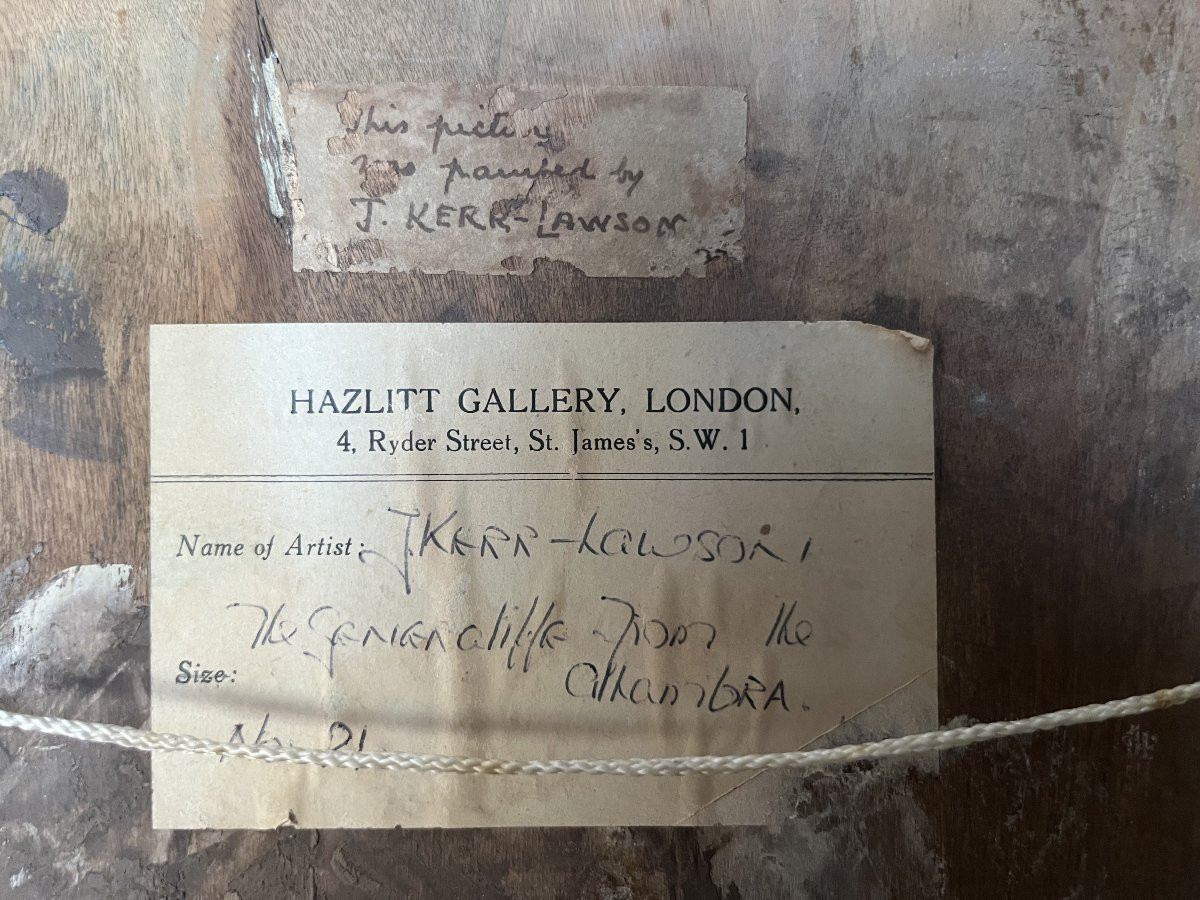 This picture
was painted by
J. KERR-LAWSON
HAZLITT GALLERY, LONDON,
4, Ryder Street, St. James's, S.W. 1
Name of Artist: J KERR-LAWSON
The Generaliffe From the
Alhambra.
Size:
No 21